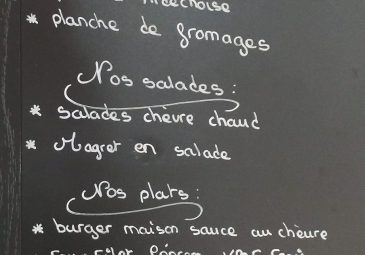 * planche de fromages
Nos salades :
* salades chèvre chaud
* Magret en salade
Nos plats :
* burger maison sauce au chèvre